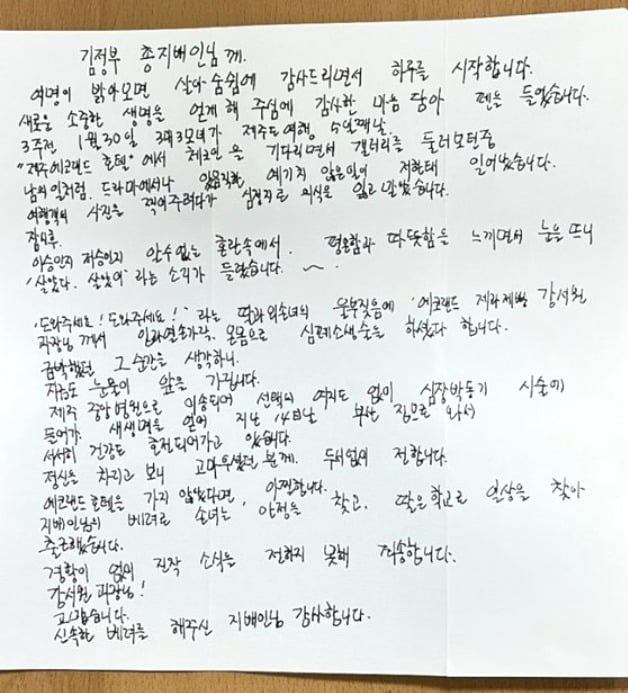 김정부 총지배인님께.
여명이 밝아오면 살아 숨쉼에 감사드리면서 하루를 시작합니다.
새로운 소중한 생명을 얻게 해 주심에 감사한 마음 담아 펜을 들었습니다.
3주전 1월 30일 3대 3모녀가 제주도여행, 수일째날
"제주에코랜드 호텔"에서 체크인을 기다리면서 갤러리를 둘러보던중
남의일처럼. 드라마에서나 있음직한 예기치 않은일이 저한테 일어났습니다.
여행객의 사진을 찍어주려다가 심정지로 의식을 잃고 말았습니다.
잠시후.
이승인지 저승인지 알수없는 혼란속에서. 평온함과 따뜻함을 느끼면서 눈을 뜨니
'살았다. 살았어' 라는 소리가 들렸습니다. ~.
'도와주세요! 도와주세요!' 라는 딸과 외손녀의 울부짖음에 '에코랜드 제과제빵 강서원
과장님께서 인과연송가각. 온몸으로 심폐소생술을 하셨다 합니다.
급박했던 그 순간을 생각하니.
지금도 눈물이 앞을 가립니다.
제주 중앙병원으로 이송되어 선택의 여지도 없이 심장박동기 시술에
들어가 새생명을 얻어 지난 14일날 부산 집으로 와서
서서히 건강도 호전되어가고 있습니다.
정신을 차리고 보니 고마우셨던 분께. 두서없이 전합니다.
에코랜드호텔을 가지 않았다면, 아찔합니다.
지배인님의 베려로 손녀는 안정을 찾고. 딸은 학교로 일상을 찾아
출근했습니다.
경황이 없어 진작 소식을 전하지 못해 죄송합니다.
강서원 과장님!
고맙습니다.
신속한 베려를 해주신 지배인님 감사합니다.